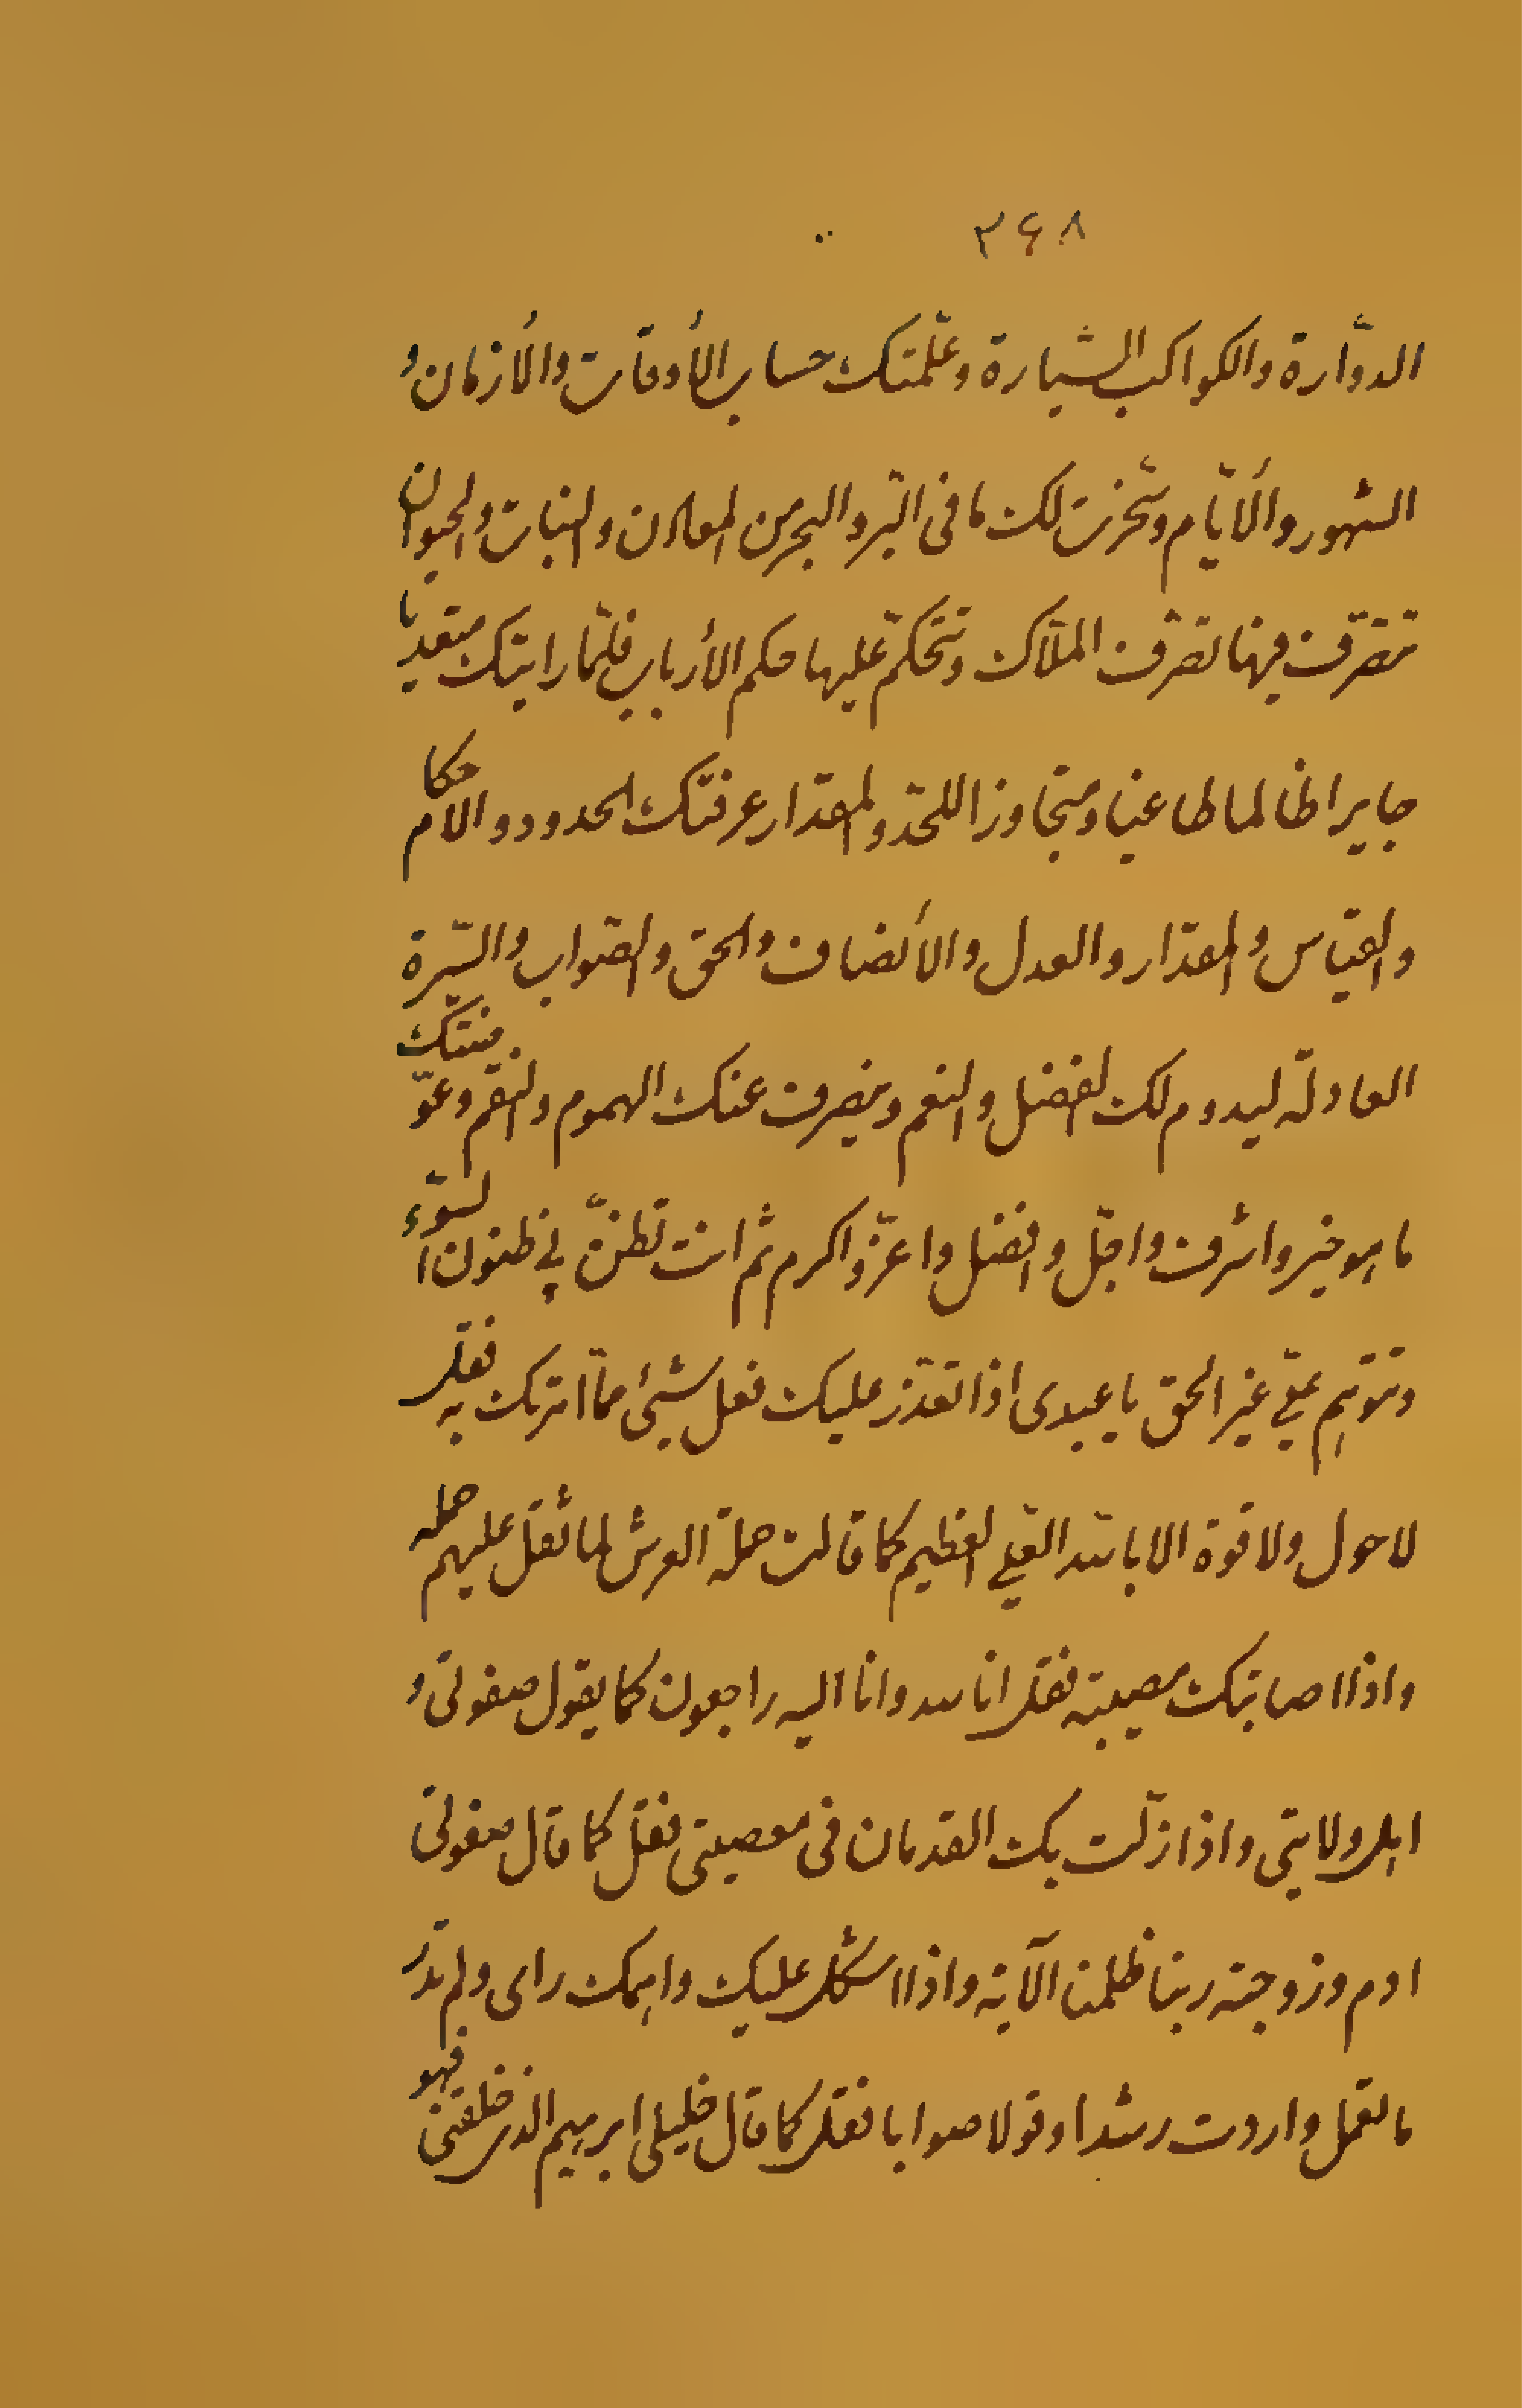 ۳۶۸
الدوّارة والكواكب السّيارة وعلّمتك حساب الأوقات والأزمان و
الشهور والأيّام وسخّرت لك ما فى البرّ والبحر من المعادن والنبات والحيوان
تتصرّف فيها تصرّف الملّاك وتتحكم عليها حكم الأرباب فلمّا رايتك متعديا
جايرا ظالما طاغيا ومتجاوزا للحدّ والمقدار عرفتك الحدود والاحكام
والقياس والمقدار والعدل والأنصاف والحق والصواب والسّيرة
العادلة ليدوم لك الفضل والنعم وينصرف عنك الهموم والنقم وعوّضتك
ما هو خير واشرف واجلّ وافضل واعزّ واكرم ثم انت تظنّ بى ظنون السّوء
وتتوهم علىّ غير الحق يا عبدى اذا تعذّر عليك فعل شيئ ممّا امرتك به فقل
لا حول ولا قوة الا بالله العلى العظيم كما قالت حملة العرش لما ثقل عليهم حمله
واذا اصابتك مصيبة فقل انا لله وانا اليه راجعون كما يقول صفوتى و
اهل ولايتى واذا زلّت بك القدمان فى معصيتى فقل كما قال صفوتى
ادم وزوجته ربنا ظلمنا الآية واذا اشكل عليك واهمك راى ولم تدر
ما تعمل واردت رشدا وقولا صوابا فقل كما قال خليلى ابرهيم الذى خلقنى فهو